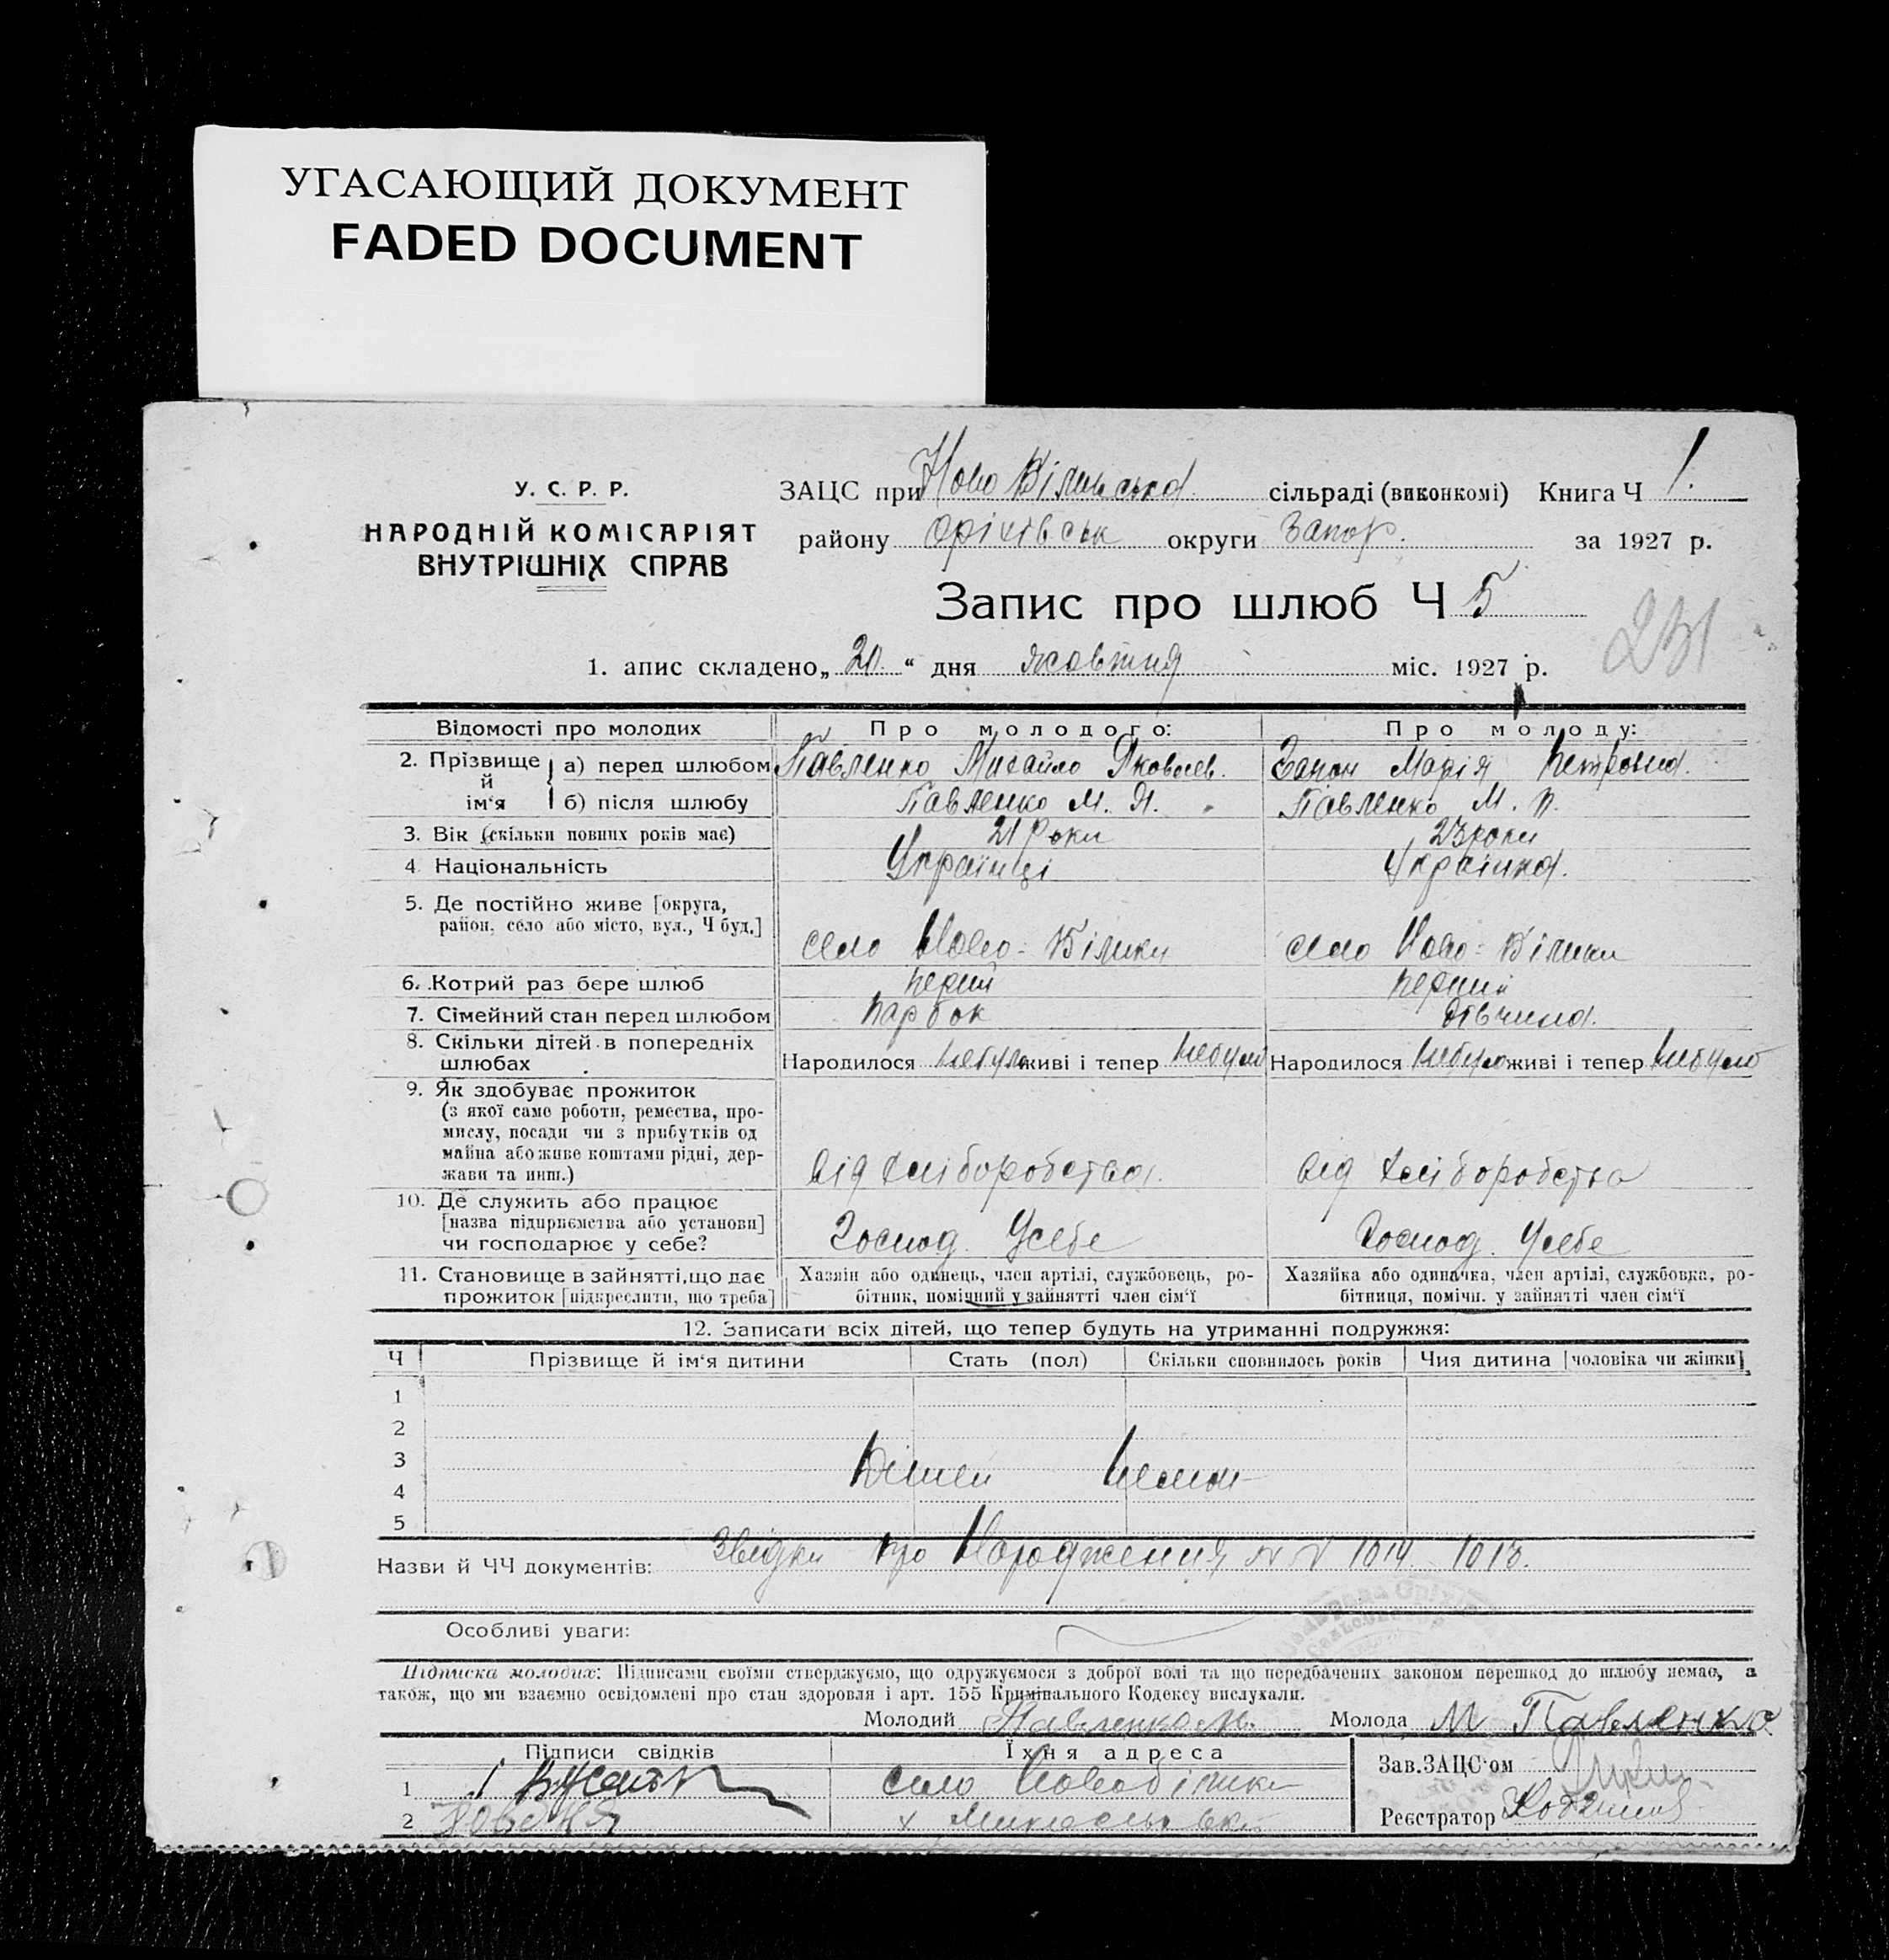 УГАСАЮЩИЙ ДОКУМЕНТ
FADED DOCUMENT
У. С. Р. Р.
НАРОДНІЙ КОМІСАРІЯТ
ВНУТРІШНІХ СПРАВ
ЗАЦС при Ново Білинська сільраді (виконкомі) Книга Ч 1.
району Оріхівськ округи Запор. за 1927 р.
Запис про шлюб Ч 5
231
1. апис складено „20“ дня жовтня міс. 1927 р.
Відомості про молодих Про молодого: Про молоду:
2. Прізвище й ім'я а) перед шлюбом Павленко Михайло Яковлев. Марія Петровна.
б) після шлюбу Павленко М. Я. Павленко М. П.
3. Вік (скільки повних років має) 21 Роки 23 роки
4. Національність Українці Українка.
5. Де постійно живе [округа,
район, село або місто, вул., Ч буд.]
село Ново-Білики село Ново-Білики
6. Котрий раз бере шлюб перший перший
7. Сімейний стан перед шлюбом парбок дівчина.
8. Скільки дітей в попередніх
шлюбах Народилося небуло живі і тепер небуло Народилося небуло живі і тепер небуло
9. Як здобуває прожиток
(з якої саме роботи, ремества, про-
мислу, посади чи з прибутків од
майна або живе коштами рідні, дер-
жави та инш.) від хліборобства. від хліборобства
10. Де служить або працює
[назва підприємства або установи]
чи господарює у себе? Господ. Усебе Господ. Усебе
11. Становище в зайнятті, що дає Хазяїн або одинець, член артілі, службовець, ро- Хазяйка або одиначка, член артілі, службовка, ро-
прожиток [підкреслити, що треба] бітник, помічний у зайнятті член сім'ї бітниця, помічн. у зайнятті член сім'ї
12. Записати всіх дітей, що тепер будуть на утриманні подружжя:
Ч Прізвище й ім'я дитини Стать (пол) Скільки сповнилось років Чия дитина [чоловіка чи жінки]
1
2
3
Дітей немає
4
5
Назви й ЧЧ документів: Звідки про Народження N N 1014 1013.
Особливі уваги:
Підписка молодих: Підписами своїми стверджуємо, що одружуємося з доброї волі та що передбачених законом перешкод до шлюбу немає, а
також, що ми взаємно освідомлені про стан здоровля і арт. 155 Кримінального Кодексу вислухали.
Молодий Павленко М. Молода М Павленко
Підписи свідків Їхня адреса Зав. ЗАЦС'ом
1 село Новобілики
2 х
Реєстратор